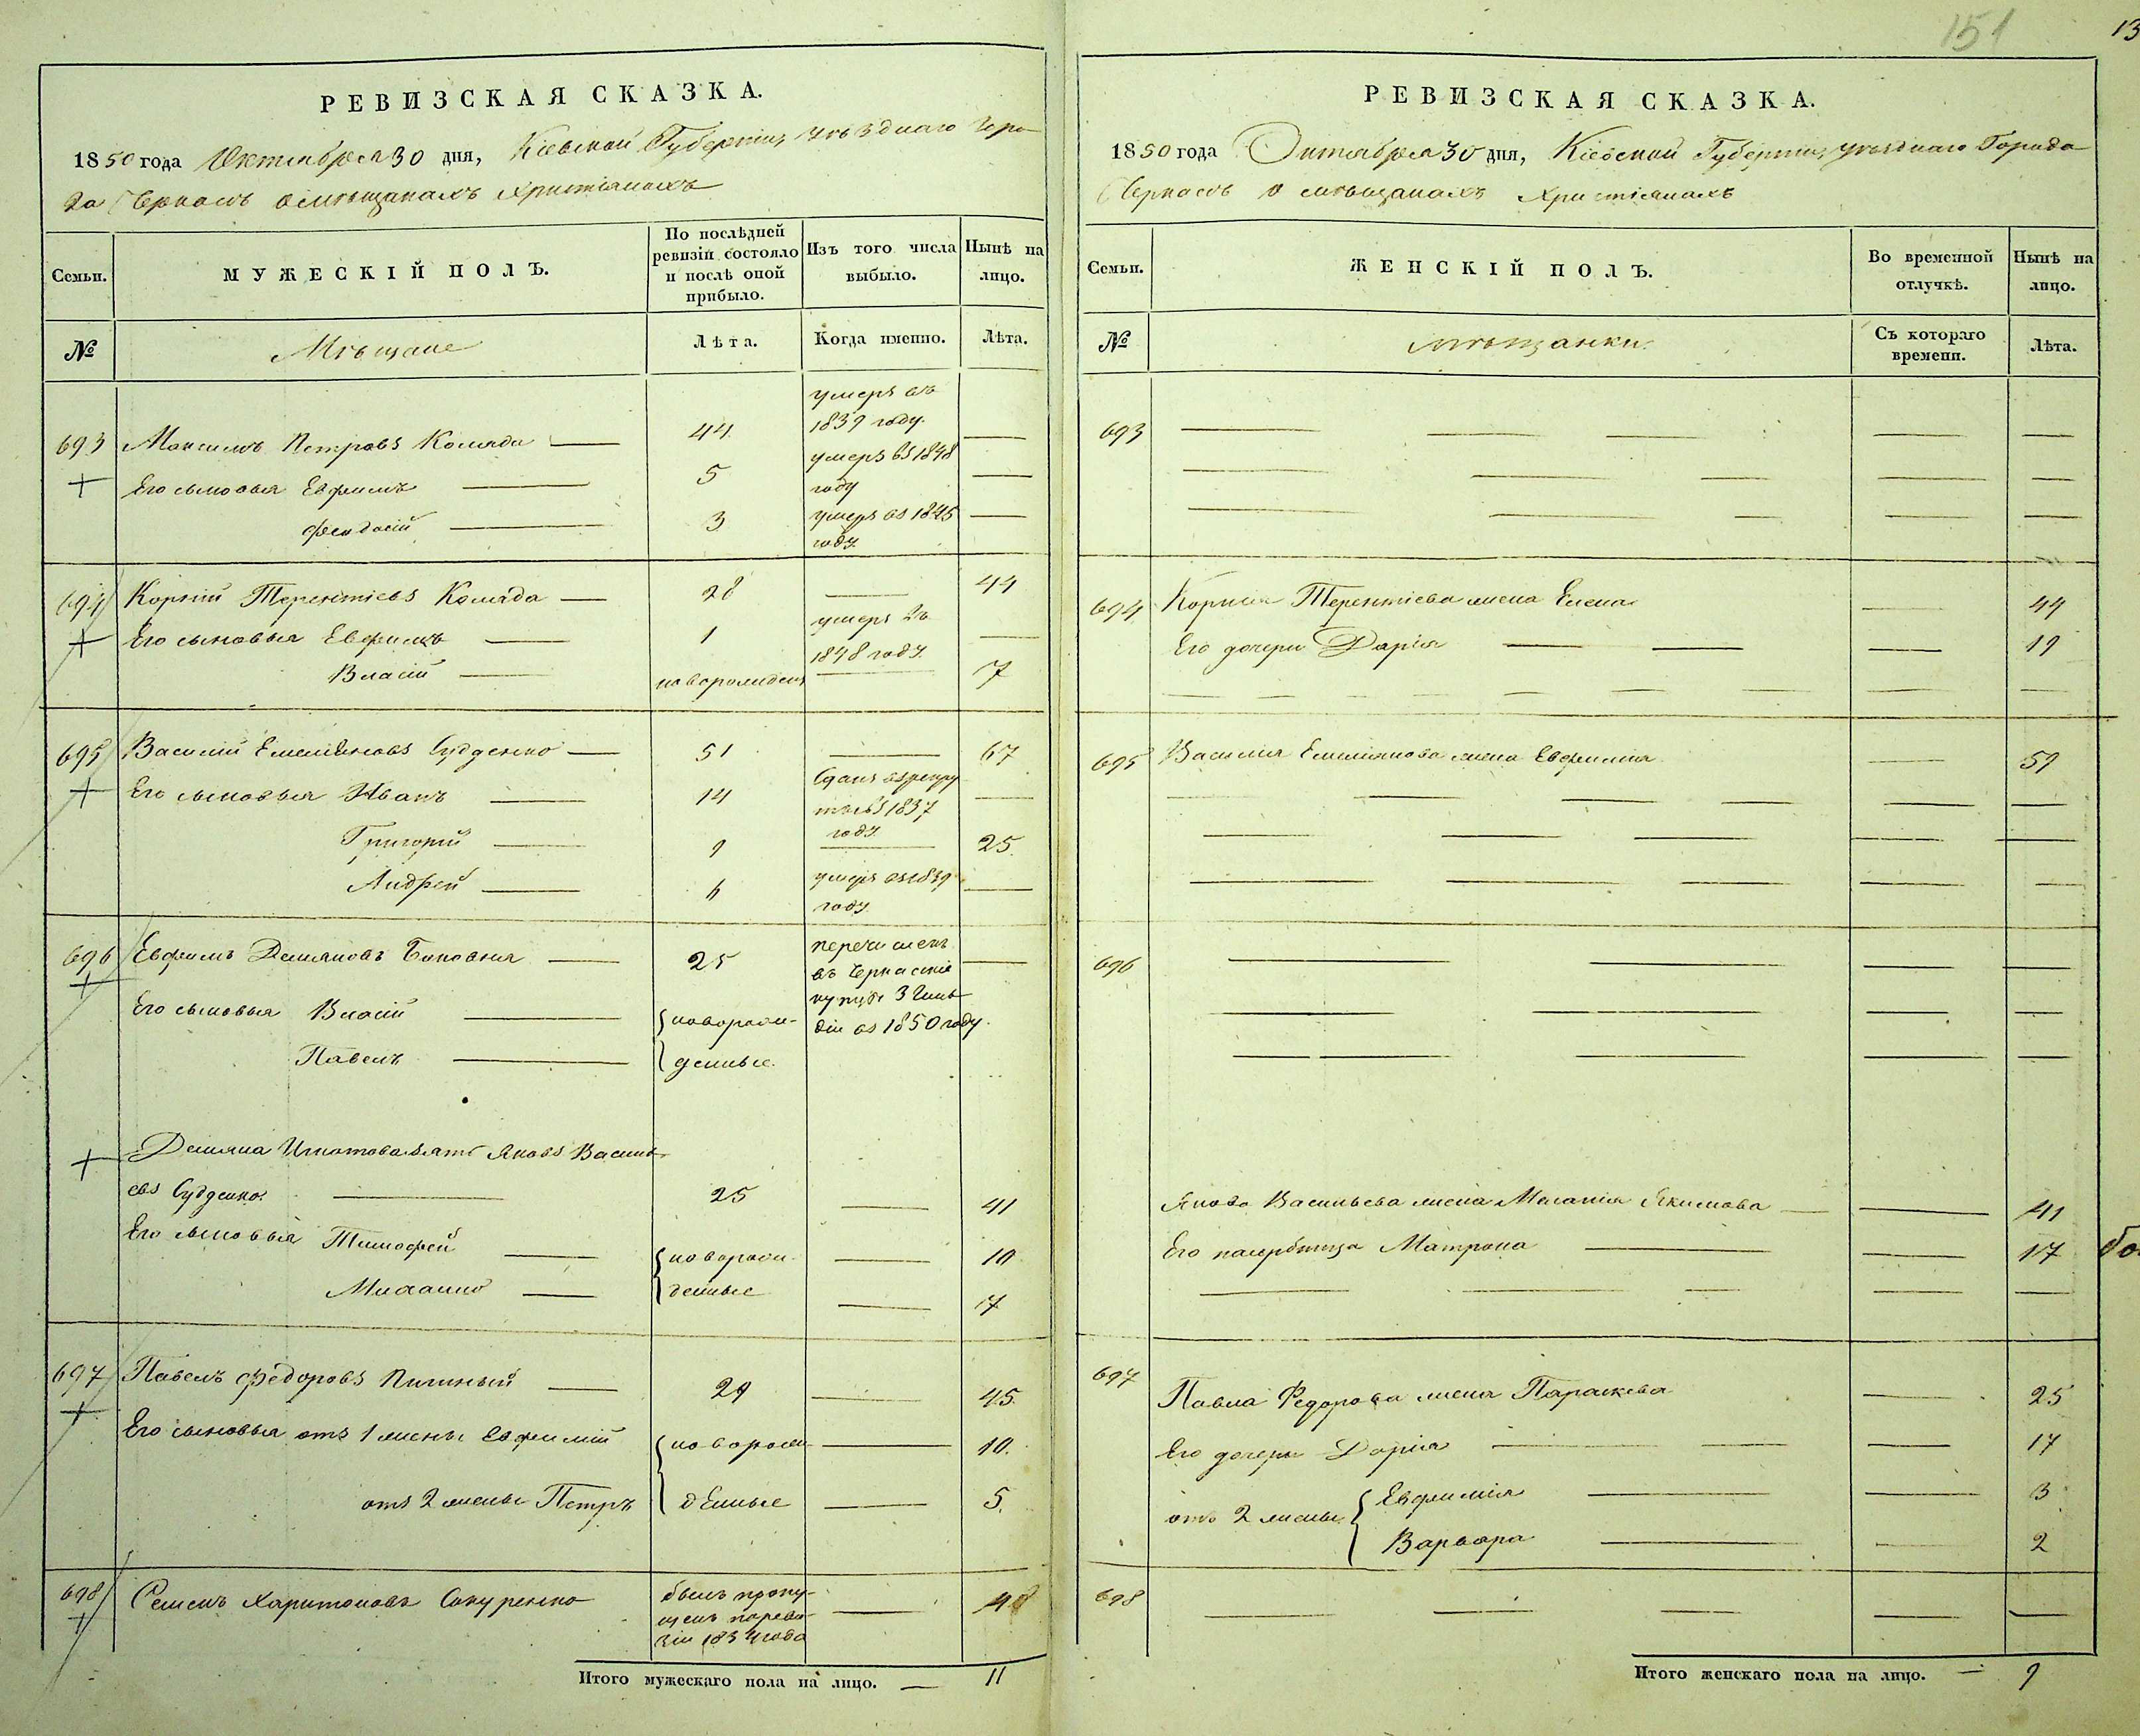 151
13
РЕВИЗСКАЯ СКАЗКА.
1850 года Октября 30 дня, Кіевской Губерніи, уѣзднаго Горо-
да Черкасъ о мѣщанахъ христіянахъ
Семьи.
МУЖЕСКІЙ ПОЛЪ.
По послѣдней ревизіи состояло и послѣ оной прибыло.
Изъ того числа выбыло.
Нынѣ на лицо.
№
Мѣщане
Лѣта.
Когда именно.
Лѣта.
693 Максимъ Петровъ Коляда — 44 умеръ въ 1839 году. —
Его сыновья Евфимъ — 5 умеръ въ 1848 году —
Феодосій — 3 умеръ въ 1845 году. —
694 Корній Терентіевъ Коляда — 28 — 44
Его сыновья Евфимъ — 1 умеръ въ 1848 году. —
Власій — новорожденъ — 7
695 Василій Емеліяновъ Судденко — 51 — 67
Его сыновья Иванъ — 14 сданъ въ рекруты въ 1837 году —
Григорій — 9 — 25.
Андрей — 6 умеръ въ 1839 году —
696 Евфимъ Демяновъ — 25 перечисленъ въ Черкаскіе купцы 3 гильдіи въ 1850 году. —
Его сыновья Власій — { новорож-
Павелъ — { денные.
Демяна Игнатова зять Яковъ Василь-
евъ Судденко. — 25 — 41
Его сыновья Тимофей — { новорож- — 10
Михаилъ — { денные — 7
697 Павелъ Федоровъ — 29 — 45.
Его сыновья отъ 1 жены Евфимій { новорож- — 10.
отъ 2 жены Петръ { денные — 5.
698 Семенъ Харитоновъ Сокуренко былъ пропущенъ по ревизіи 1834 года — 48
Итого мужескаго пола на лицо. — 11
РЕВИЗСКАЯ СКАЗКА.
1850 года Октября 30 дня, Кіевской Губерніи, уѣзднаго Города
Черкасъ о мѣщанахъ христіянахъ
Семьи.
ЖЕНСКІЙ ПОЛЪ.
Во временной отлучкѣ.
Нынѣ на лицо.
№
мѣщанки.
Съ котораго времени.
Лѣта.
693
694 Корнія Терентіева жена Елена — 44
Его дочери Дарія — 19
695 Василія Емеліянова жена Евфимія — 59
696
Якова Васильева жена Меланія Якимова — 41
Его падчерица Матрона — 17
697 Павла Федорова жена Параскева — 25
Его дочери Дарія — 17
отъ 2 жены { Евфимія — 3
{ Варвара — 2
698
Итого женскаго пола на лицо. — 9